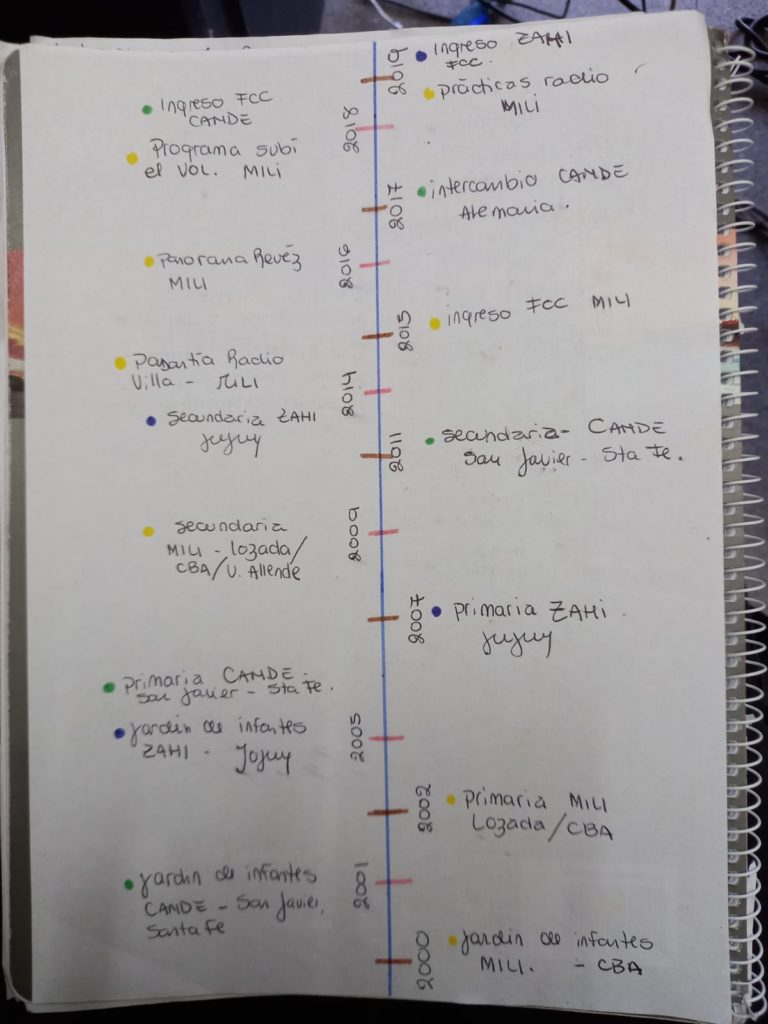 2019
• Ingreso ZAHI
FCC.
• prácticas radio
MILI
• Ingreso FCC
CANDE
2018
• Programa subí
el VOL. MILI
2017
• intercambio CANDE
Alemania.
2016
• Panorama Revéz
MILI
2015
• ingreso FCC MILI
2014
• Pasantía Radio
Villa - MILI
• secundaria ZAHI
Jujuy
2011
• secundaria - CANDE
San Javier - Sta Fe.
2009
• secundaria
MILI - Lozada/
CBA/V. Allende
2007
• primaria ZAHI
Jujuy
• primaria CANDE -
San Javier - Sta Fe.
• jardín de infantes
ZAHI - Jujuy
2005
2002
• primaria MILI
Lozada/CBA
2001
• jardin de infantes
CANDE - San Javier.
Santa Fe
2000
• jardin de infantes
MILI. - CBA